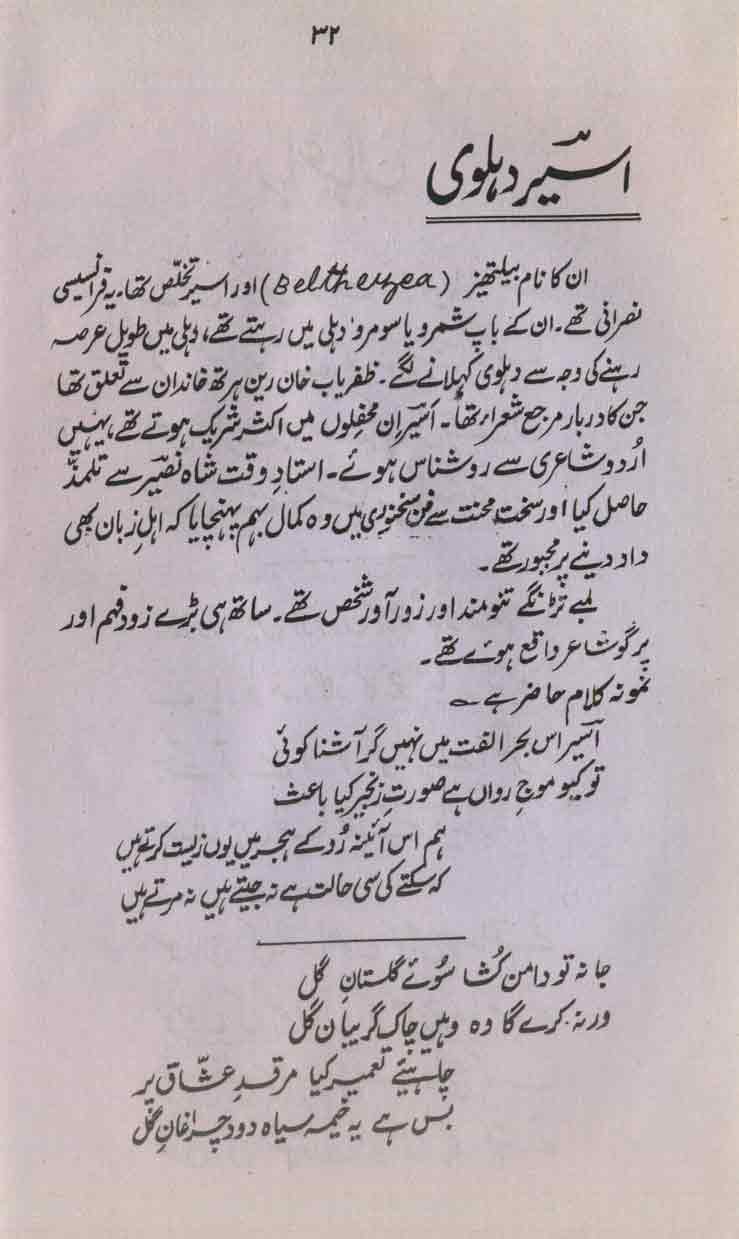 ۳۲
اسیرؔ دہلوی
ان کا نام بیلتھیز (Beltheyzea) اور اسیر تخلّص تھا۔ یہ فرانسیسی
نصرانی تھے۔ ان کے باپ شمرو یا سومرو دہلی میں رہتے تھے، دہلی میں طویل عرصہ
رہنے کی وجہ سے دہلوی کہلانے لگے۔ ظفریاب خان رین ہرتھ خاندان سے تعلق تھا
جن کا دربار مرجع شعراء تھا۔ اسیرؔ ان محفلوں میں اکثر شریک ہوتے تھے، یہیں
اُردو شاعری سے روشناس ہوئے۔ استادِ وقت شاہ نصیرؔ سے تلمذّ
حاصل کیا اور سخت محنت سے فن سخنوری میں وہ کمال بہم پہنچایا کہ اہلِ زبان بھی
داد دینے پر مجبور تھے۔
لمبے تڑنگے تنومند اور زور آور شخص تھے۔ ساتھ ہی بڑے زود فہم اور
پرگو شاعر واقع ہوے تھے۔
نمونہ کلام حاضر ہے ؎
اسیرؔ اس بحر الفت میں نہیں گر آشنا کوئی
تو کیو موجِ رواں ہے صورتِ زنجیر کیا باعث
ہم اس آئینہ رُو کے ہجر میں یوں زیست کرتے ہیں
کہ سکتے کی سی حالت ہے نہ جیتے ہیں نہ مرتے ہیں
جا نہ تو دامن کُشا سُوئے گلستانِ گل
ورنہ کرے گا وہ وہیں چاک گریبان گل
چاہیئے تعمیر کیا مرقدِ عشّاق پر
بس ہے یہ خیمہ سیاہ دود چراغانِ گل